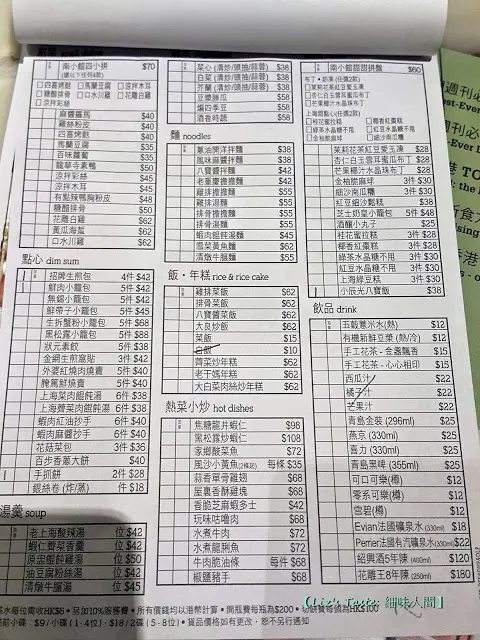 南小館四小拼 $70
(選以下任何4款)
□四喜烤麩 □馬蘭豆腐 □涼拌木耳
□糖醋排骨 □口水川雞 □花雕白雞
□涼拌彩絲
麻醬蘿萵 $40
雞絲粉皮 $40
四喜烤麩 $40
馬蘭豆腐 $35
百味蘿蔔 $35
龍華寺素鴨 $50
涼拌彩絲 $45
涼拌木耳 $45
有點辣鴨胸粉皮 $48
糖醋排骨 $50
花雕白雞 $62
黃瓜海蜇 $62
口水川雞 $62
點心 dim sum
招牌生煎包 4件 $42
鮮肉小籠包 5件 $42
無錫小籠包 5件 $42
鮮帶子小籠包 5件 $45
生拆蟹粉小籠包 5件 $68
黑松露小籠包 5件 $88
狀元素餃 5件 $38
金網生煎窩貼 3件 $42
外婆紅燒肉燒賣 5件 $40
腌篤鮮燒賣 5件 $40
上海菜肉餛飩湯 6件 $38
上海薺菜肉餛飩湯 6件 $38
蝦肉紅油抄手 6件 $40
蝦肉麻醬抄手 6件 $40
花菇菜包 3件 $36
百步香蔥大餅 $40
手抓餅 2件 $28
銀絲卷 (炸/蒸) 件 $18
湯羹 soup
老上海酸辣湯 位 $42
蝦仁薺菜香羹 位 $42
原盅餛飩雞湯 位 $50
油豆腐粉絲湯 位 $42
清燉牛腩湯 位 $45
菜心 (清炒/頭抽/蒜蓉) $38
白菜 (清炒/頭抽/蒜蓉) $38
芥蘭 (清炒/頭抽/蒜蓉) $38
豆漿勝瓜 $58
煸四季豆 $58
酒香時蔬 $58
麵 noodles
蔥油開洋拌麵 $38
風味麻醬拌麵 $38
八寶醬拌麵 $42
老重慶擔擔麵 $42
雞排擔擔麵 $55
雞排湯麵 $55
排骨擔擔麵 $55
排骨湯麵 $55
蝦肉餛飩湯麵 $45
雪菜黃魚麵 $62
清燉牛腩麵 $55
飯・年糕 rice & rice cake
雞排菜飯 $62
排骨菜飯 $62
八寶醬菜飯 $62
大良炒飯 $62
菜飯 $15
白飯 $10
薺菜炒年糕 $62
老干媽年糕 $62
大白菜肉絲炒年糕 $62
熱菜小炒 hot dishes
焦糖龍井蝦仁 $98
黑松露炒蝦仁 $108
家鄉酸菜魚 $72
風沙小黃魚(2條起) 每條 $35
蒜香單骨雞翅 $68
屋裏香酥雞塊 $68
香脆芝麻蝦多士 $42
玩味咕嚕肉 $68
水煮牛肉 $72
水煮龍脷魚 $72
牛肉脆油條 每件 $68
椒鹽豬手 $68
南小館甜甜拼盤 $60
布丁・奶凍(任選2款)
□茉莉花茶紅豆愛玉凍
□杏仁白玉雪耳蜜瓜布丁
□芒果椰汁水晶珠布丁
上海甜點心(任選2款)
□桂花蜜拉糕 □椰香紅棗糕
□綠茶水晶糖不甩 □紅豆水晶糖不甩
□金柚脆麻球
茉莉花茶紅豆愛玉凍 $28
杏仁白玉雪耳蜜瓜布丁 $28
芒果椰汁水晶珠布丁 $28
金柚脆麻球 3件 $30
細沙南瓜糰 3件 $30
紅豆細沙鬆糕 $38
芝士奶皇小籠包 5件 $48
酒釀小丸子 $25
桂花蜜拉糕 3件 $30
椰香紅棗糕 3件 $28
綠茶水晶糖不甩 3件 $30
紅豆水晶糖不甩 3件 $30
上海綠豆糕 3件 $30
小辰光八寶飯 $38
飲品 drink
五穀薏米水(熱) $12
有機新鮮豆漿 (熱/冷) $12
手工花茶 - 金盞飄香 $15
手工花茶 - 心心相印 $15
西瓜汁 $22
橘子汁 $22
芒果汁 $22
青島金裝 (296ml) $25
燕京 (330ml) $25
喜力 (330ml) $25
青島黑啤 (355ml) $25
可口可樂(樽) $12
零系可樂(樽) $12
雪碧(樽) $12
Evian法國礦泉水 (330ml) $18
Perrier法國有汽礦泉水 (330ml) $22
紹興酒5年陳 (400ml) $120
花雕王8年陳 (250ml) $180
茶水每位需收HK$6・另加10%服務費・所有價錢均以港幣計算・開瓶費每瓶為$200・切餅費每個為HK$100
前小碟：$9/小碟(1-4位)・$18/2碟(5-8位)・貨品價格如有更改，恕不另行通知
【Liz's Taste 細味人間】